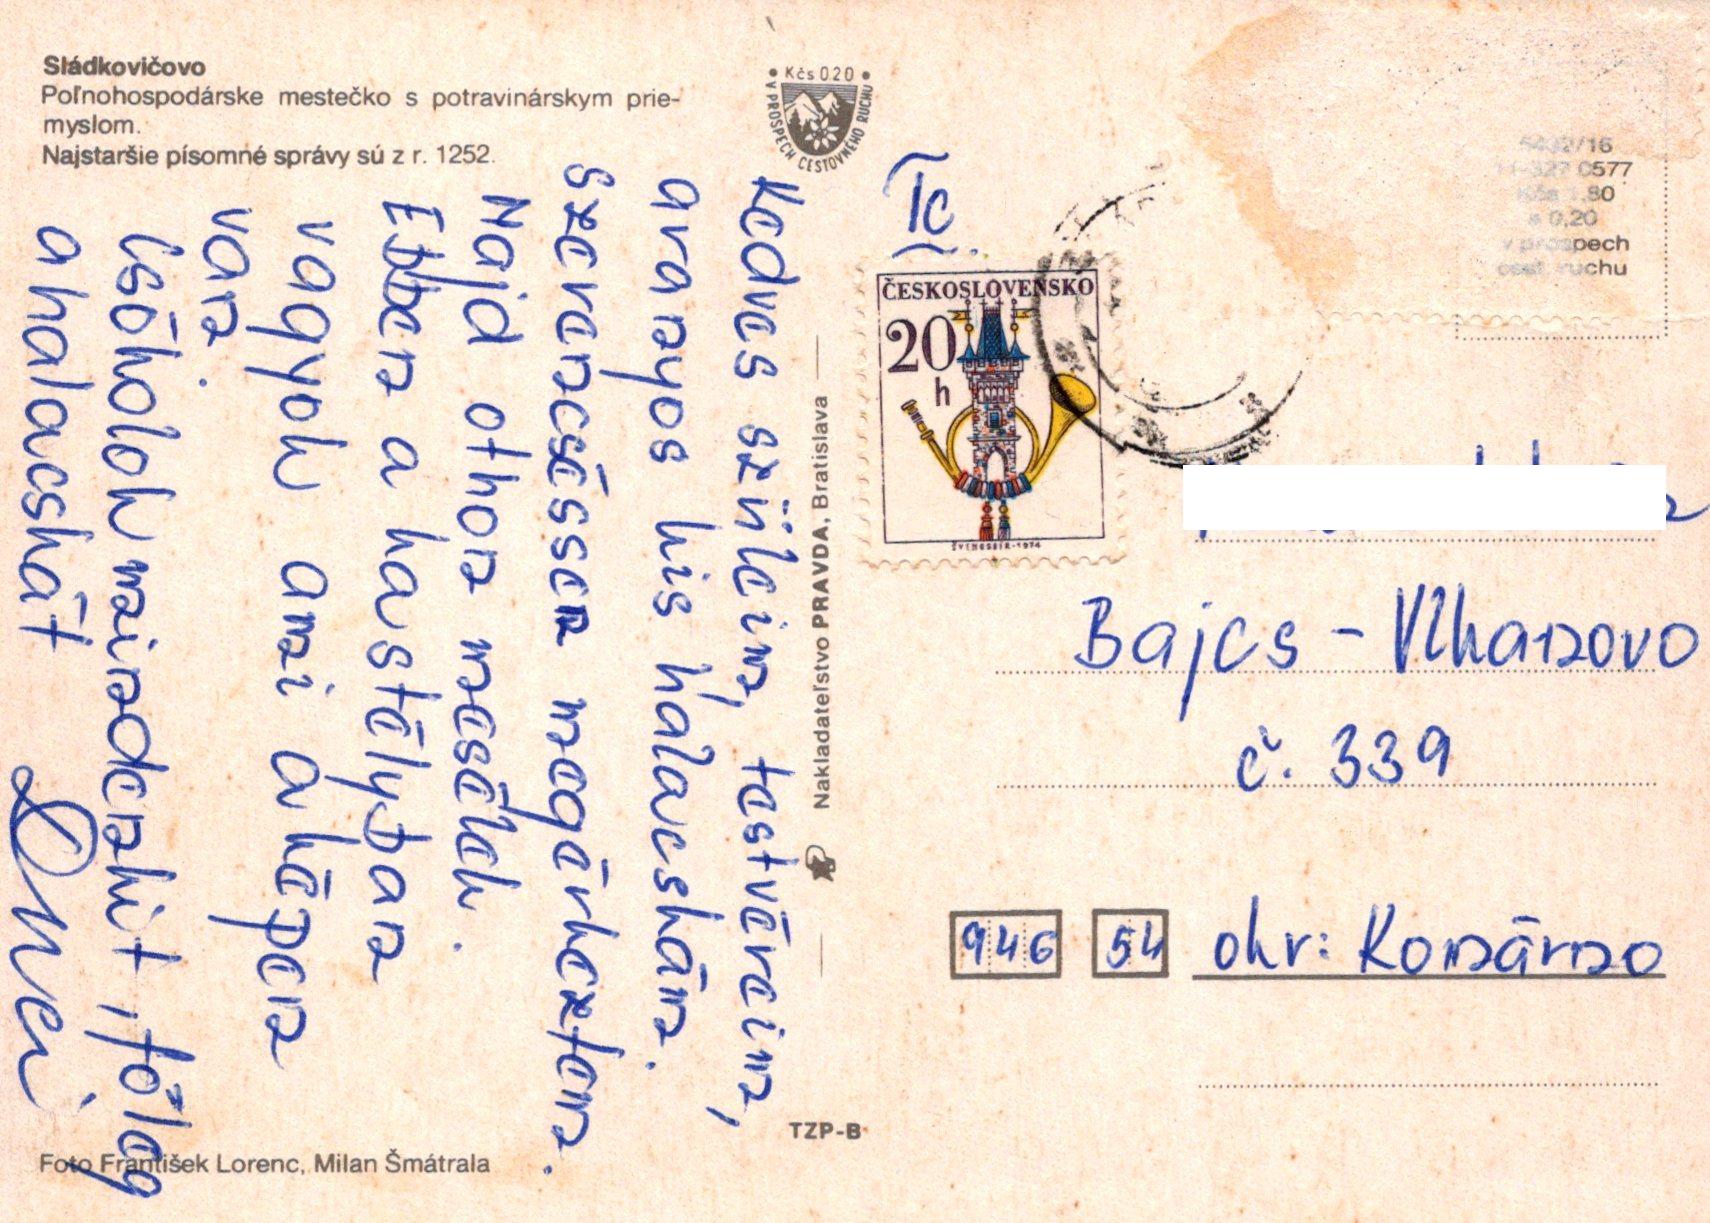 Sládkovičovo
Poľnohospodárske mestečko s potravinárskym prie-
myslom.
Najstaršie písomné správy sú z r. 1252.
Kčs 0.20
V PROSPECH CESTOVNÉHO RUCHU
Kedves szüleim, testvéreim,
aranyos kis halacskám.
Szerencséssen megérkeztem.
Majd othon mesélek.
Ebben a kastélyban
vagyok ami a képen
van.
Csókolok mindenkit, főleg
a halacskát
Nakladateľstvo PRAVDA, Bratislava
TZP-B
Foto František Lorenc, Milan Šmátrala
ČESKOSLOVENSKO
20
h
ŠVENGSBIR-1974
5432/16
11-327 0577
Kčs 1,80
a 0,20
v prospech
cest. ruchu
Bajcs - Vlkanovo
č. 339
946 54 okr: Komárno